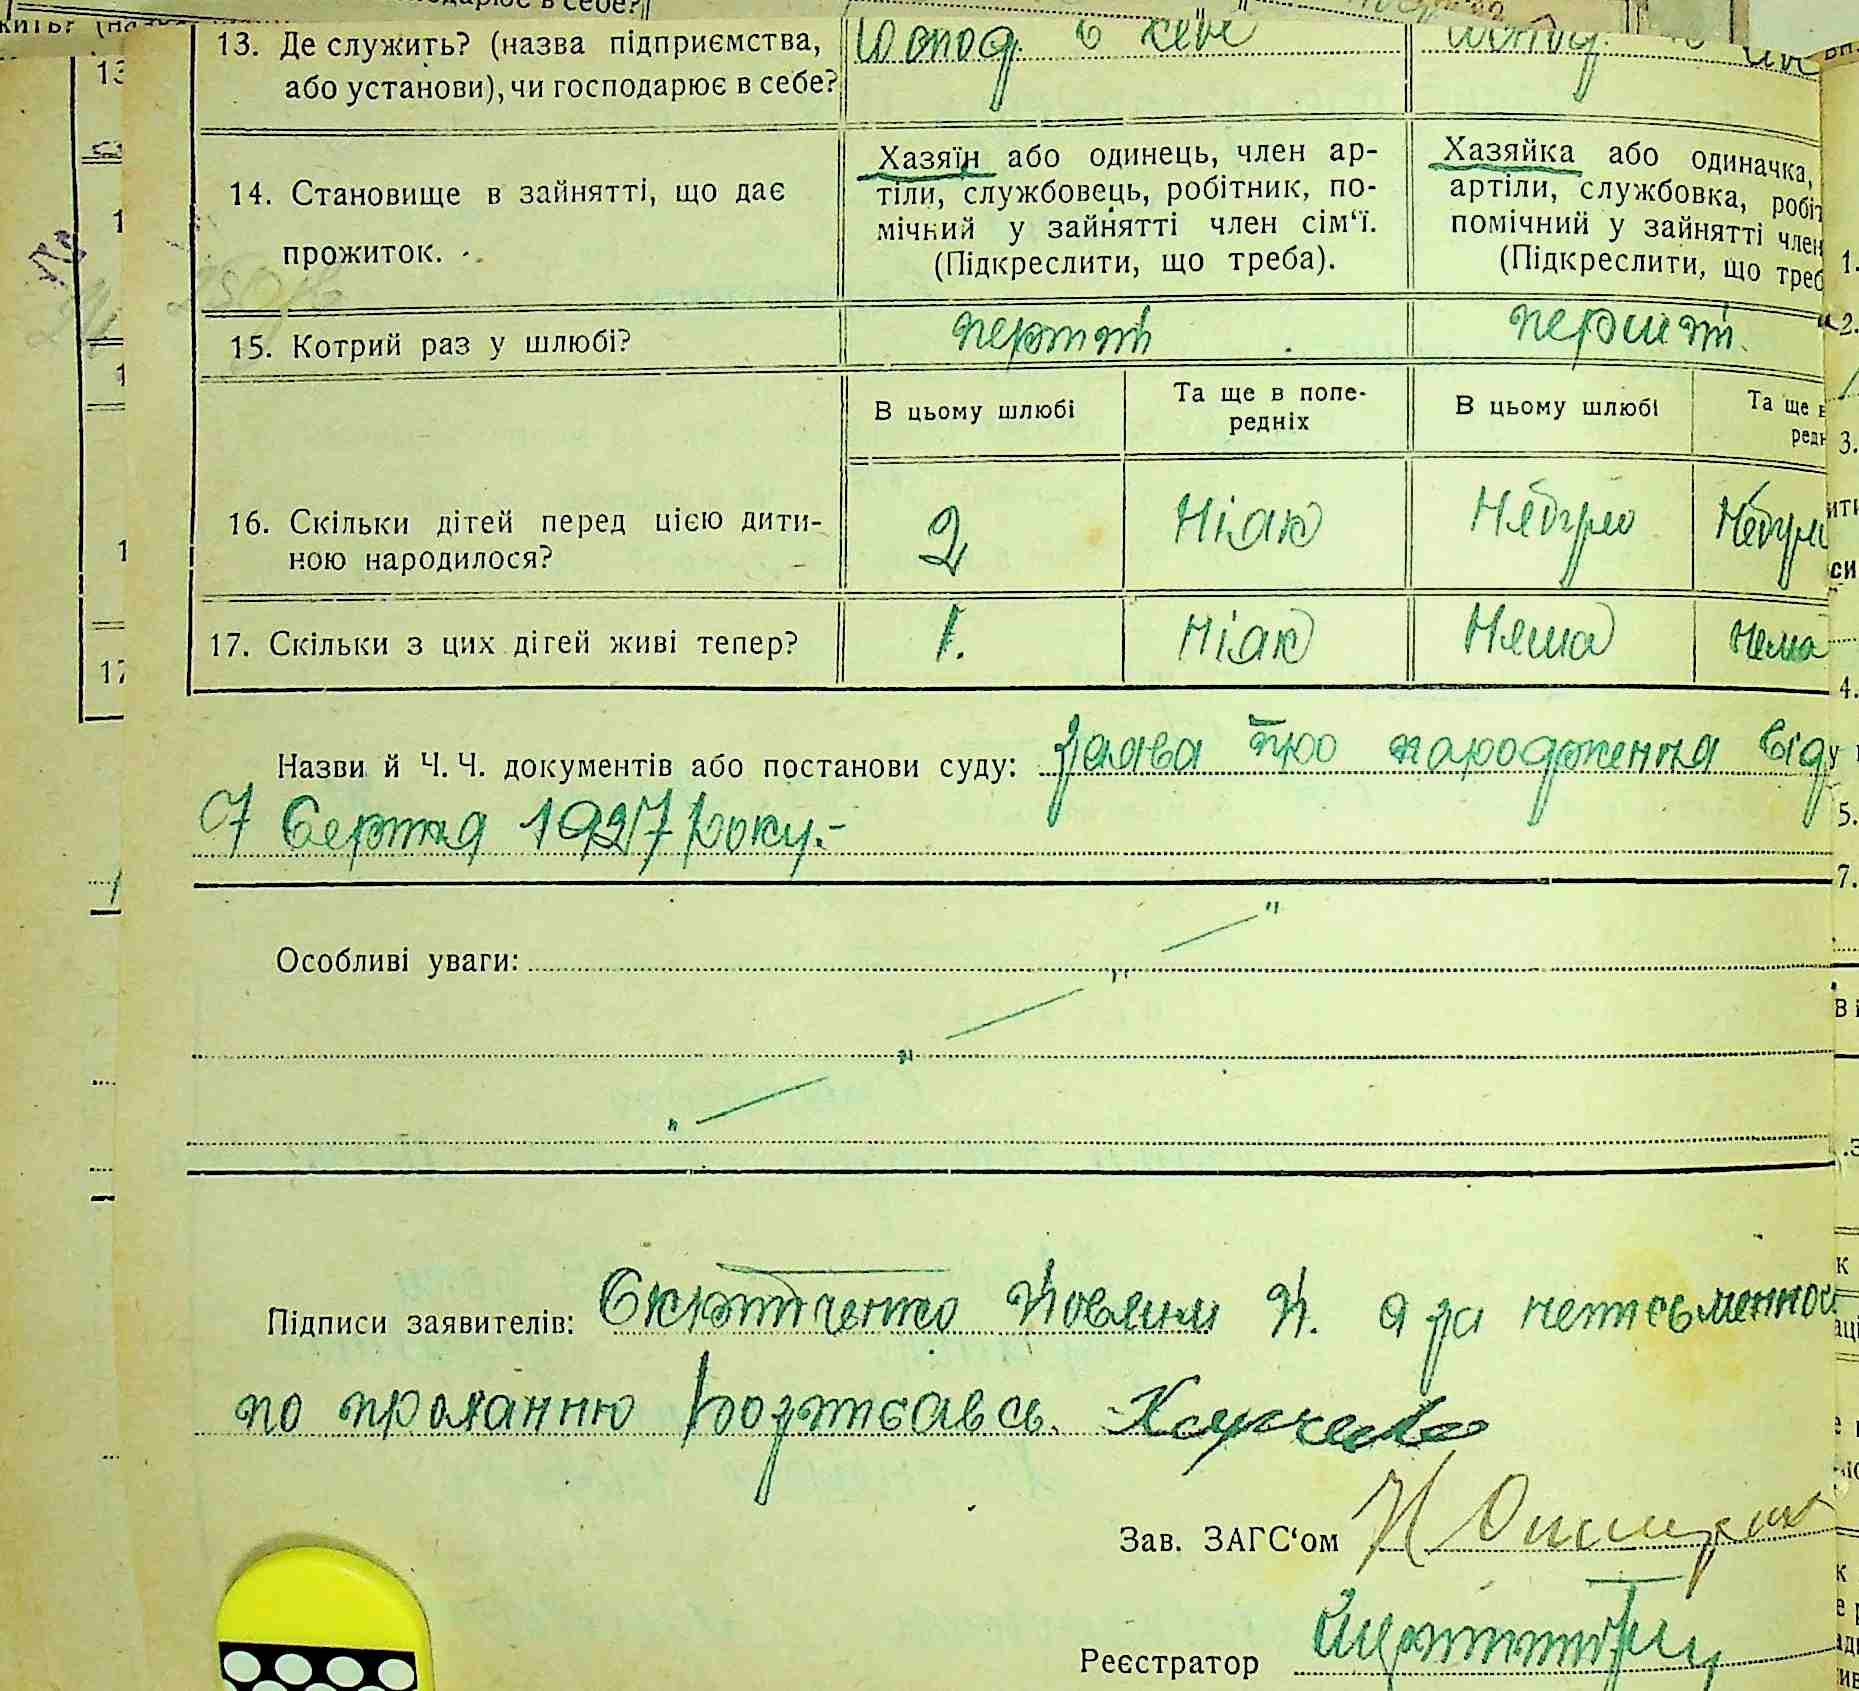 13. Де служить? (назва підприємства,
або установи), чи господарює в себе?
Господ. в себе
14. Становище в зайнятті, що дає
прожиток.
Хазяїн або одинець, член ар-
тіли, службовець, робітник, по-
мічний у зайнятті член сім‘ї.
(Підкреслити, що треба).
Хазяйка або одиначка,
артіли, службовка, робіт
помічний у зайнятті член
(Підкреслити, що треб
15. Котрий раз у шлюбі?
перший
перший
В цьому шлюбі
Та ще в попе-
редніх
В цьому шлюбі
Та ще в
редн
16. Скільки дітей перед цією дити-
ною народилося?
2
Ніяк
Небуло
Небуло
17. Скільки з цих дітей живі тепер?
1.
Ніяк
Нема
Нема
Назви й Ч. Ч. документів або постанови суду: Заява про народження від
7 Серпня 1927 року.-
Особливі уваги:
Підписи заявителів: Скрипченко П. а за неписьменного
по проханню розписавсь.
Зав. ЗАГС‘ом
Реєстратор